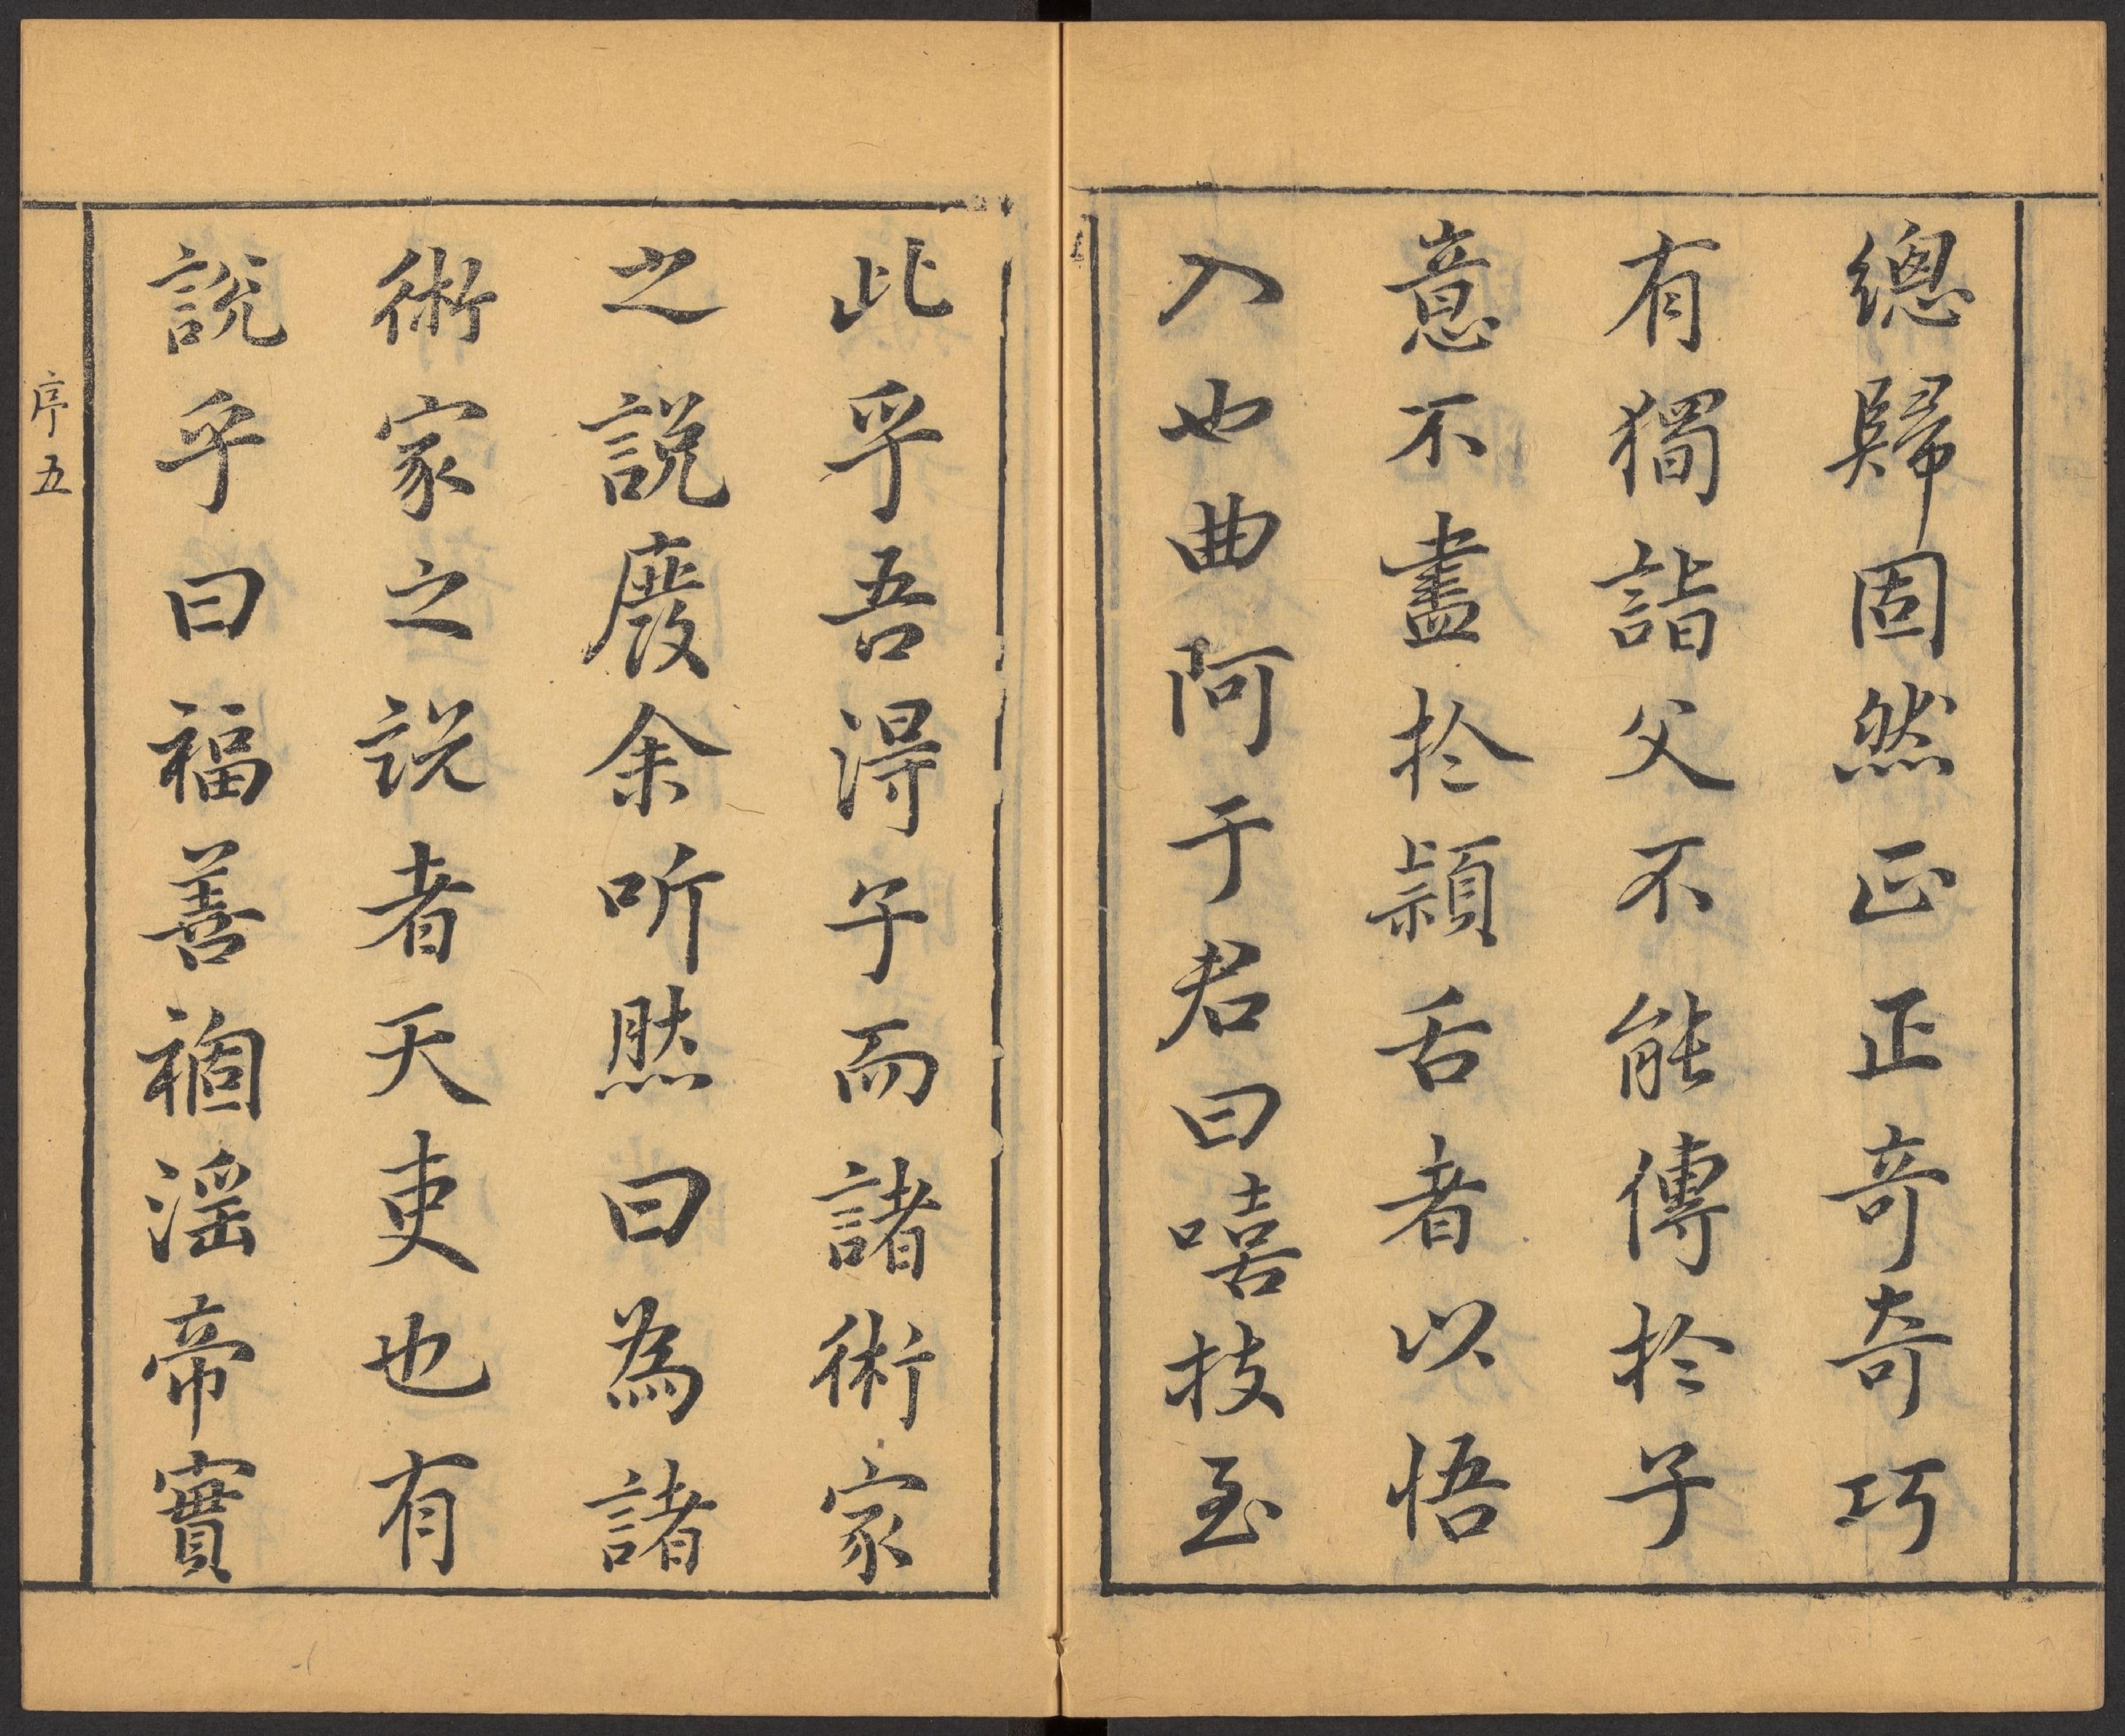 總歸固然正正奇奇巧
有獨詣父不能傳於子
意不盡於穎舌者以悟
入也曲阿于君曰嘻技至
此乎吾得子而諸術家
之說廢余听然曰為諸
術家之説者天吏也有
說乎曰福善禍淫帝實
序五